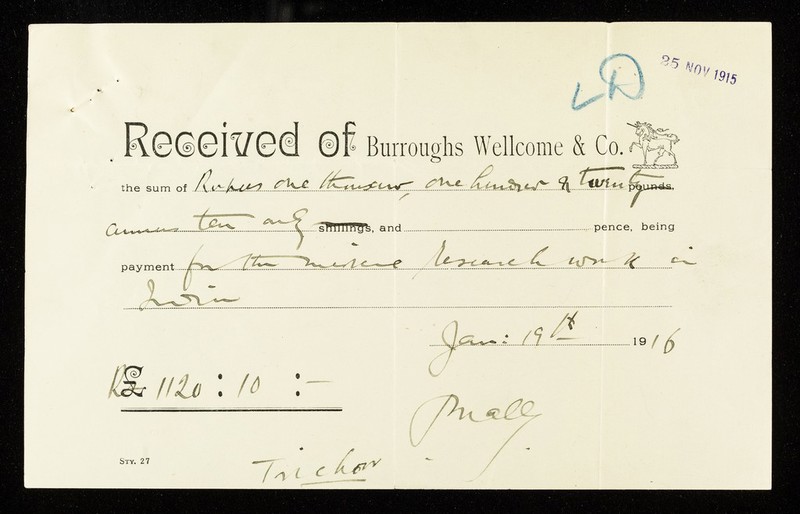 25 NOV 1915
Received of Burroughs Wellcome & Co.
the sum of Rupees one thousand, one hundred & twenty pounds.
annas ten only shillings, and pence, being
payment for the research work in
India
Jan: 19th 1916
Rs £ 1120 : 10 : —
STY. 27